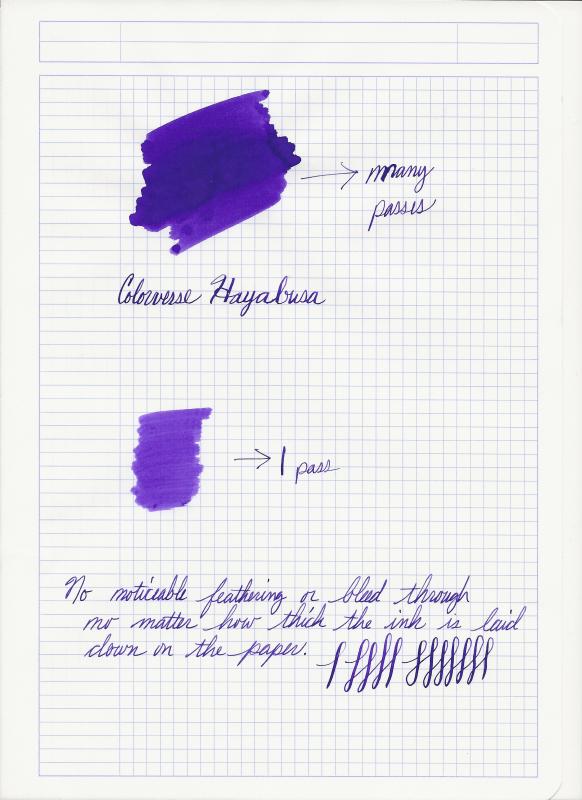 many
passes
Colorverse Hayabusa
1 pass
No noticeable feathering or bleed through
no matter how thick the ink is laid
down on the paper.